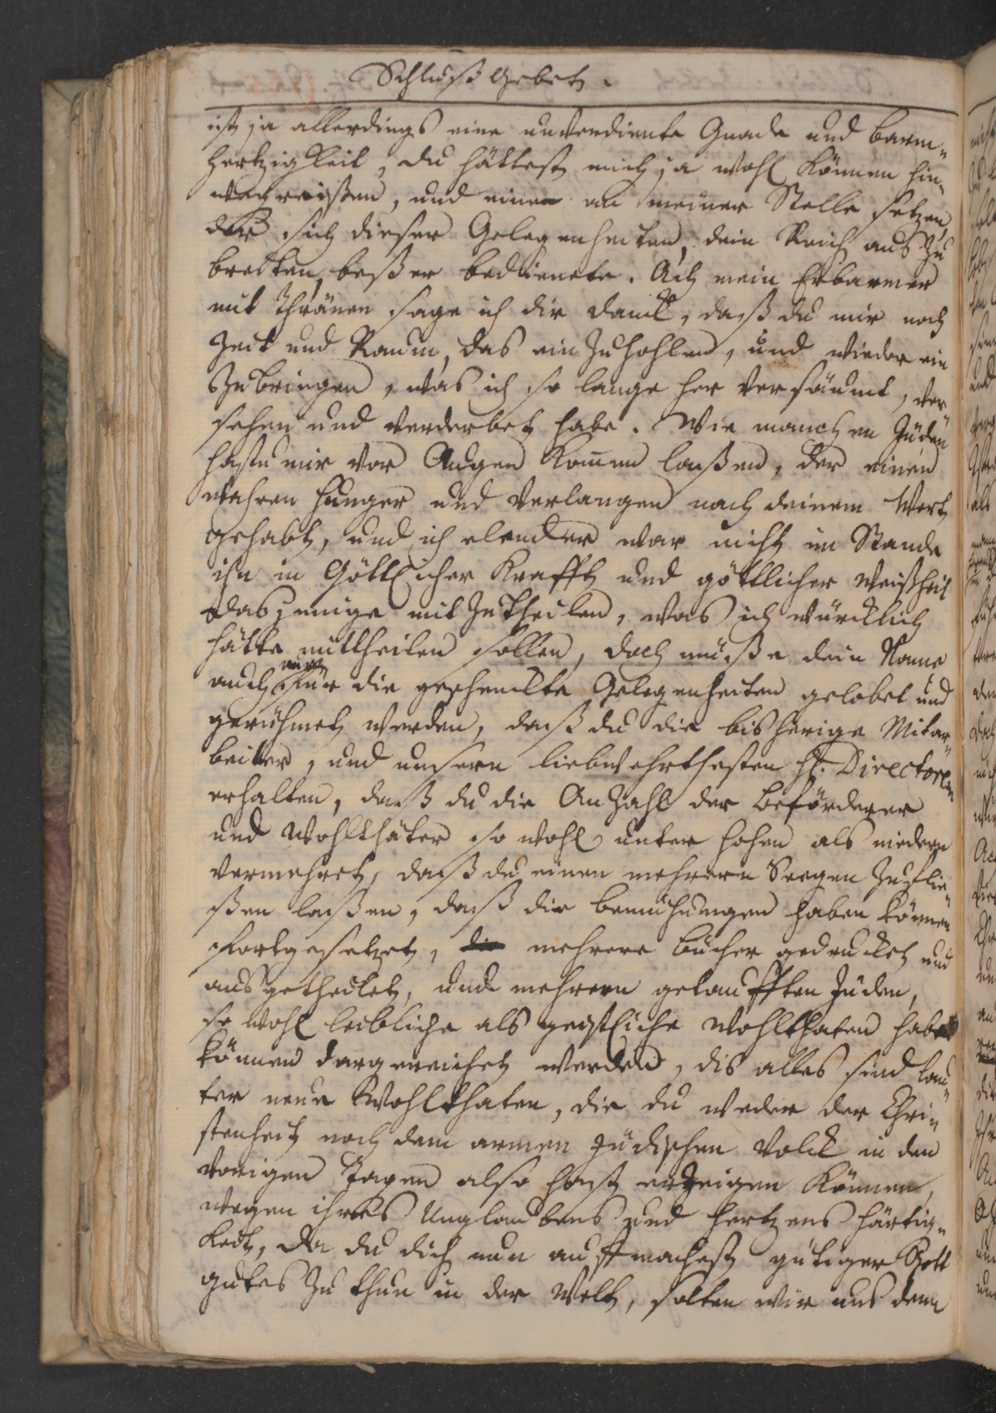 Schluß Gebet.
ist ja allerdings eine unverdiente Gnade und Barm-
hertzigkeit, du hättest mich ja wohl können hin-
wegreißen, und einen an meiner Stelle setzen,
der sich dieser Gelegenheiten, dein Reich aus zu
breiten, beßer bedienete. Ach mein Erbarmer
mit Thränen sage ich dir danck, daß du mir noch
Zeit und Raum, das ein zuhohlen, und wieder ein
zubringen, was ich so lange her versäumt, ver-
sehen und verderbet habe. Wie manchen Jüden
hastu mir vor Augen kom̅en laßen, der einen
wahren Hunger und Verlangen nach deinem Wort
gehabt, und ich elender war nicht im Stande
ihn in Göttlicher Krafft und göttlicher Weißheit
dasjenige mit zutheilen, was ich würcklich
hätte mittheilen sollen, doch müße dein Name
auch für die geschenckte Gelegenheiten gelobet und
gerühmet werden, daß du die bisherige Mitar-
beiter, und unsern liebwehrtesten H. Directorem
erhalten, daß du die Anzahl der Beförderer
und Wohlthäter so wohl unter hohen als niedern
vermehret, daß du einen mehrern Seegen zuflie-
ßen laßen, daß die bemühungen haben können
fortgesetzet, mehrere bücher gedrucket und
ausgetheilet, und mehrern getaufften Jüden,
so wohl leibliche als geistliche Wohlthaten haben
können dargereichet werden, dis alles sind lau-
ter neue Wohlthaten, die du weder der Chri-
stenheit noch dem armen jüdischen Volck in den
vorigen Tagen also hast erzeigen können,
wegen ihres Unglaubens und Hertzens Härtig-
keit, Da du dich nun auffmachest gütiger Gott
gutes zu thun in der Welt, solten wir uns denn